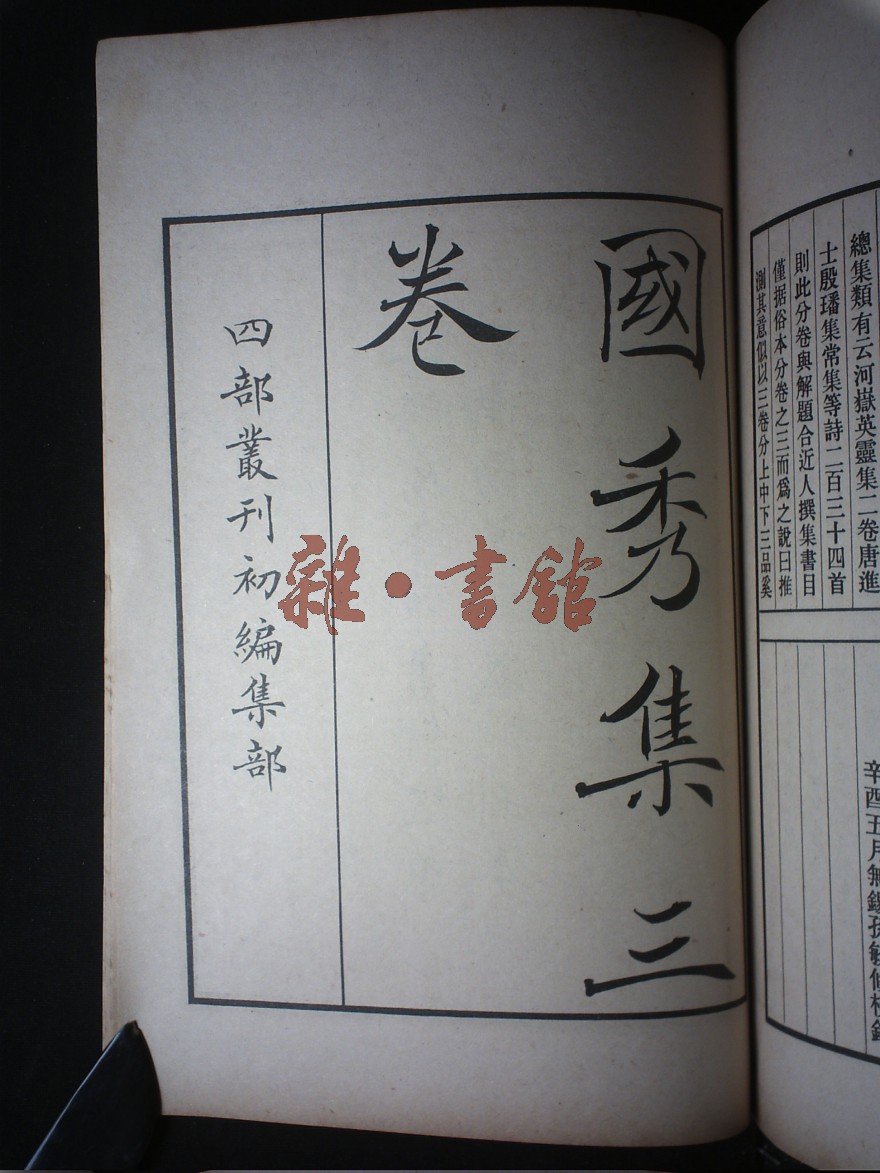 總集類有云河嶽英靈集二卷唐進
士殷璠集常集等詩二百三十四首
則此分卷與解題合近人撰集書目
僅据俗本分卷之三而爲之說曰推
測其意似以三卷分上中下三品奚
辛酉五月無錫孫毓修校
國秀集三
卷
四部叢刊初編集部
雜·書館